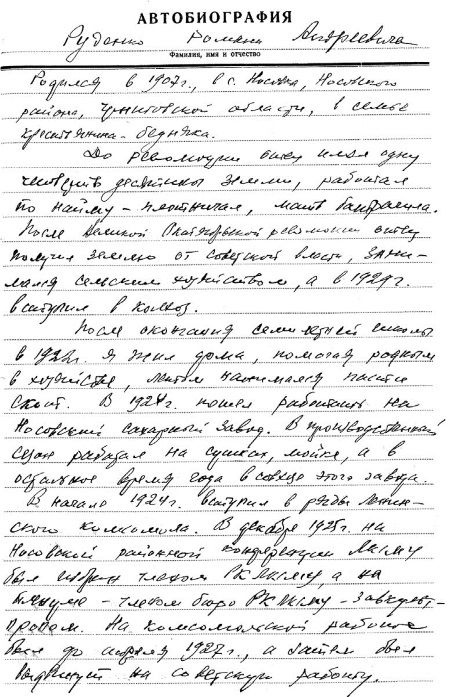 АВТОБИОГРАФИЯ
Руденко Романа Андреевича
Фамилия, имя и отчество
Родился в 1907г., в с. Носовка, Носовского
района, Черниговской области, в семье
крестьянина-бедняка.
До революции отец имел одну
четверть десятины земли, работал
по найму - плотничал, мать батрачила.
После Великой Октябрьской революции отец
получил землю от советской власти, зани-
мался сельским хозяйством, а в 1929г.
вступил в колхоз.
После окончания семилетней школы
в 1922г. я жил дома, помогая родным
в хозяйстве, летом нанимался пасти
скот. В 1924г. пошел работать на
Носовский сахарный завод. В производственный
сезон работал на сушке, мойке, а в
остальное время года в совхозе этого завода.
В начале 1924г. вступил в ряды Ленин-
ского комсомола. В декабре 1925г. на
Носовской районной конференции ЛКСМУ
был избран членом РК ЛКСМУ, а на
пленуме - членом бюро РК ЛКСМУ - завкульт-
пропом. На комсомольской работе
был до апреля 1927г., а затем был
выдвинут на советскую работу.